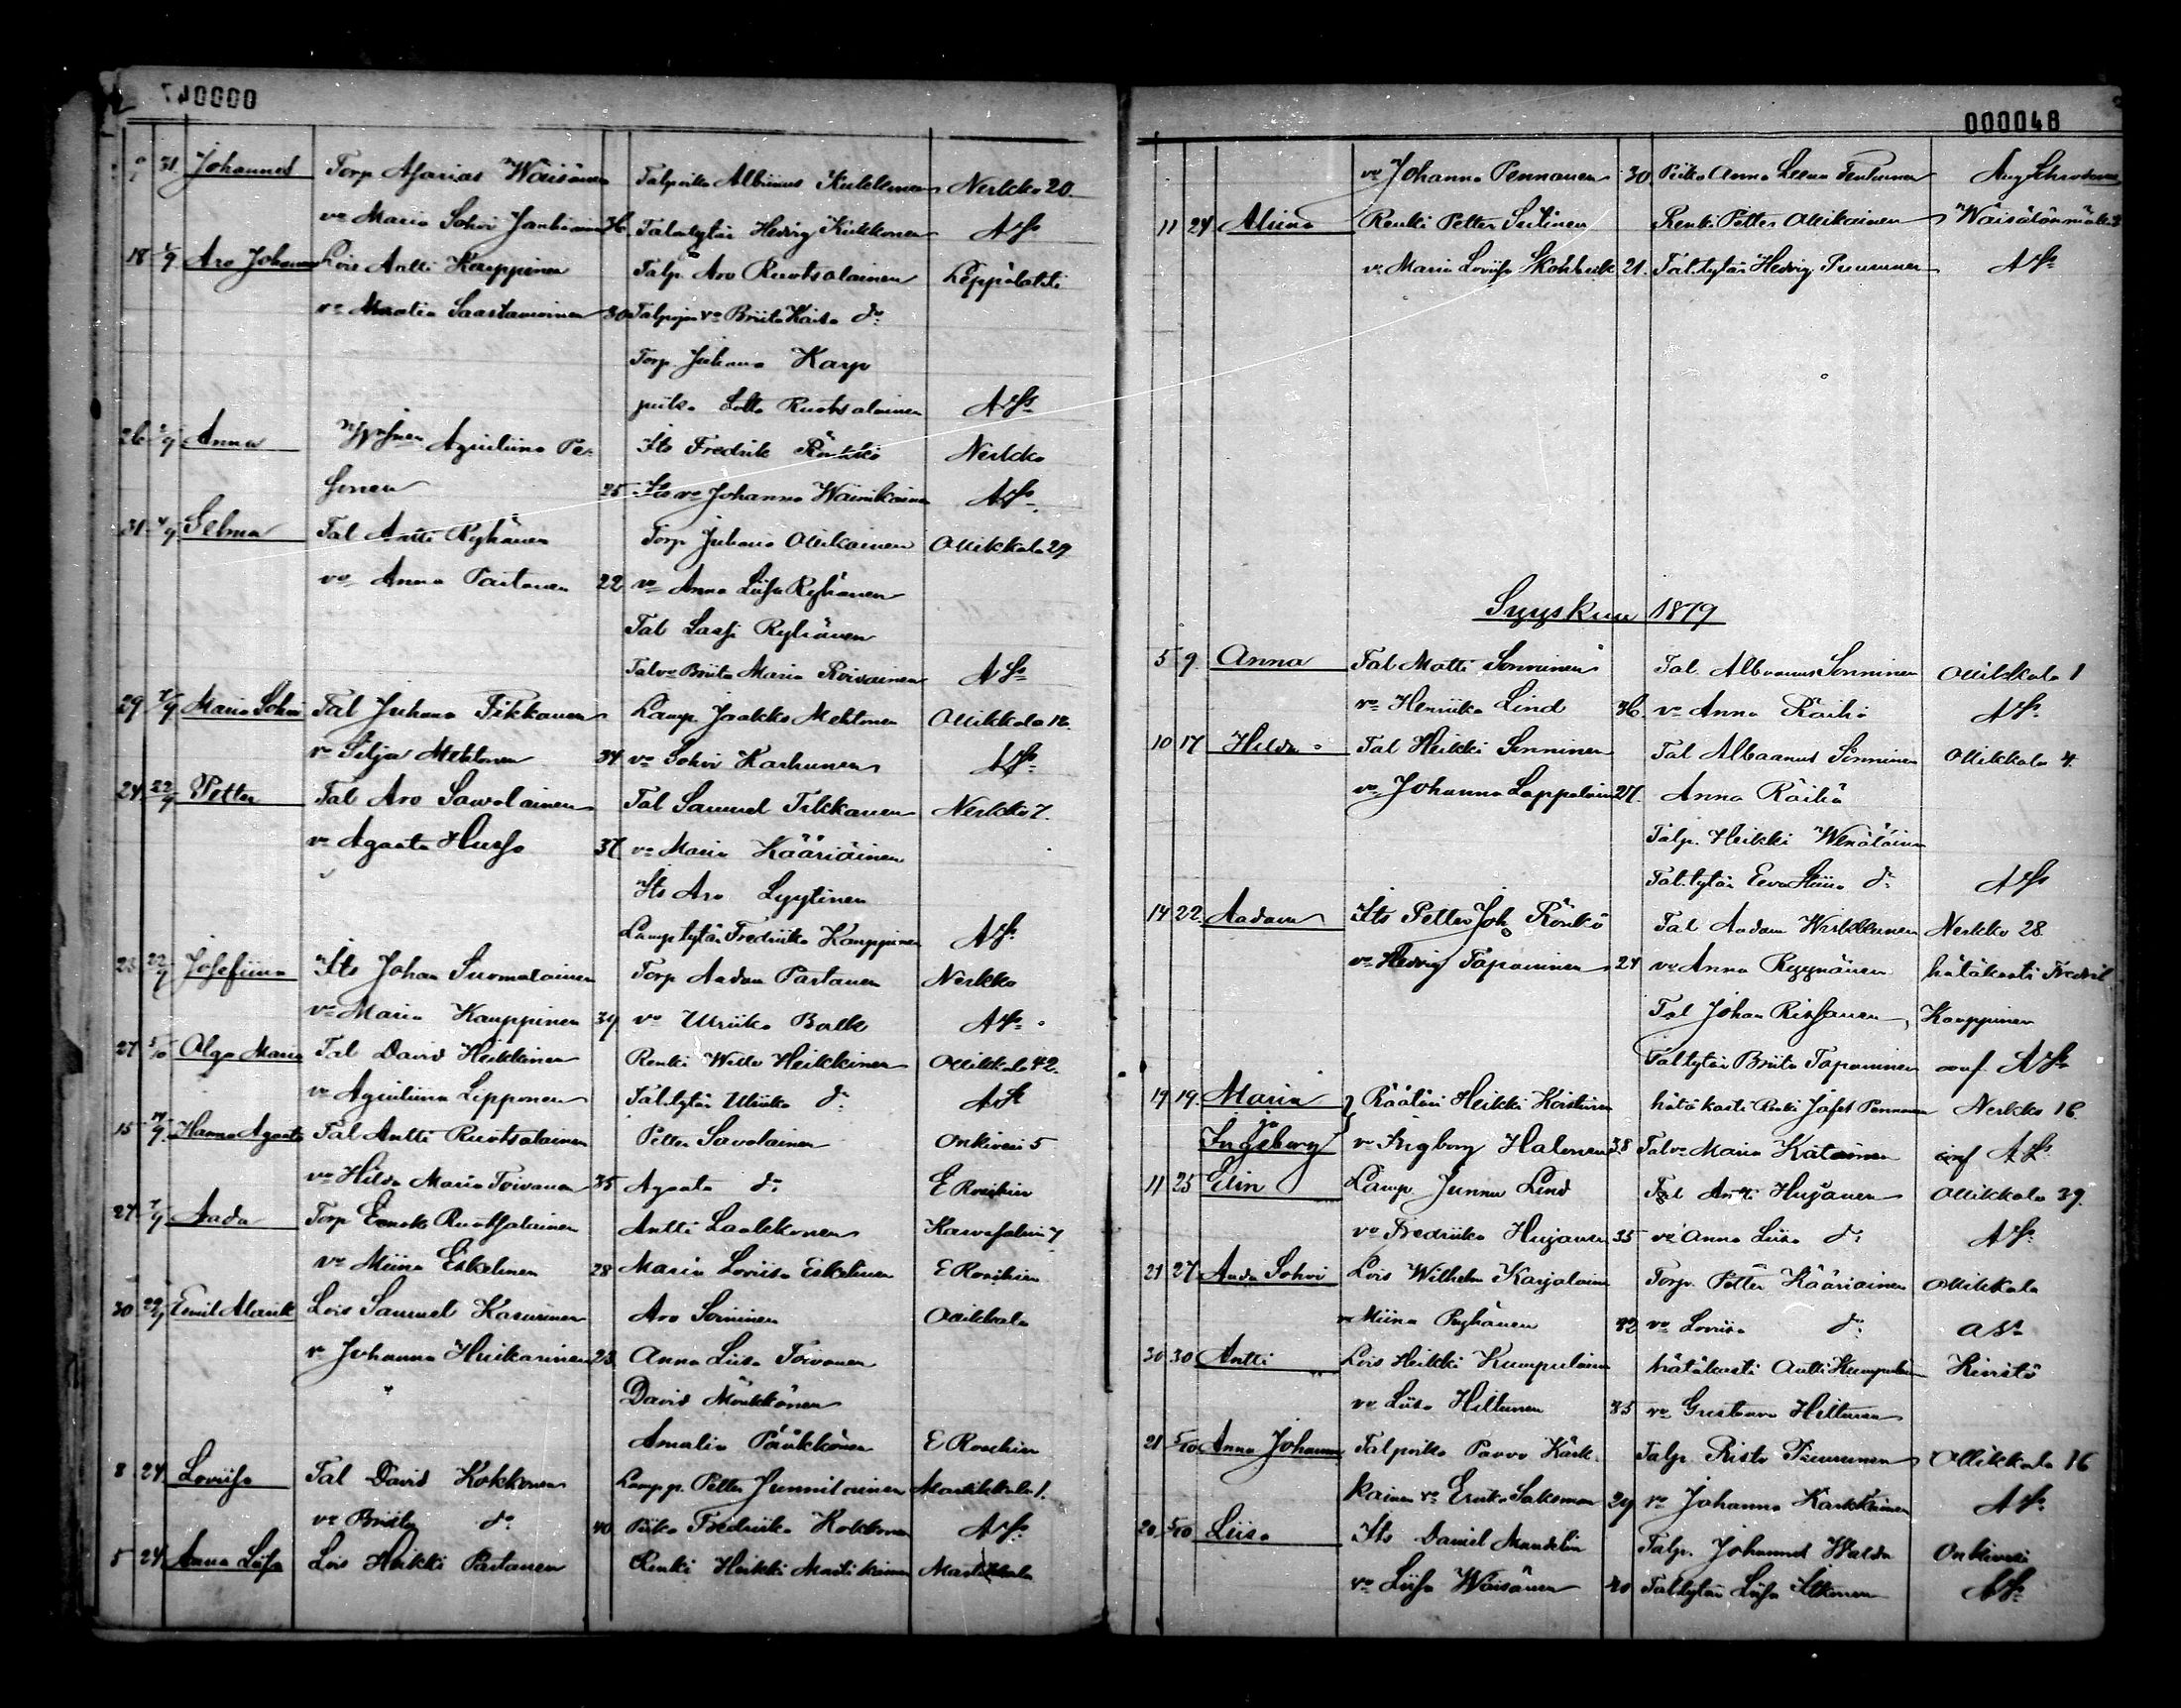 000047
31 Johannes Torp Asarias Wäisänen Talpoika Albinus Kukkonen Nerkko 20.
vo Maria Sohvi Jantunen 36 Tal.tytär Hedvig Kukkonen
18 1/9 Aro Johannes Lois Antti Kauppinen Talp. Aro Ruotsalainen Leppälahti
vo Maatia Saastamoinen 30 Talpojan vo Briita Kaisa do:
Torp. Juhana Karp
piika Lotta Ruotsalainen
26 Anna Aqviliina Pe-
sonen 25 Its vo Johanna Wäinikainen
Its Fredrik Rönkkö Nerkko
31 4/9 Selma Tal Antti Ryhänen Torp Juhana Ollikainen Ollikkala 29
vo Anna Partanen 22 vo Anna Liisa Ryhänen
Tal Lassi Ryhänen
Talvo Briita Maria Roivainen
29 7/9 Maria Sohvi Tal Juhana Tikkanen Lamp. Jaakko Mehtonen Ollikkala 12.
vo Silja Mehtonen 34 vo Sohvi Karhunen
24 22/9 Petter Tal Aro Sawolainen Tal Samuel Tikkanen Nerkko 7.
vo Agaata Husso 37 vo Maria Kääriäinen
Its Aro Lyytinen
Lamp tytär Fredriika Kauppinen
23 22/9 Josefiina Its Johan Suomalainen Torp Aadam Partanen Nerkko
vo Maria Kauppinen 39 vo Ulriika Balk
27 5/10 Olga Maria Tal David Heikkinen Renki Wille Heikkinen Ollikkala 42.
vo Aqviliina Lipponen Tal.tytär Ulriika do:
15 14/9 Hanna Agaata Tal Antti Ruotsalainen Petter Savolainen Onkivesi 5
vo Hilda Maria Toivanen 35 Agaata do: E Roschier
27 7/9 Aada Torp Eenok Ruotsalainen Antti Laakkonen Karvasalmi 7
vo Miina Eskelinen 28 Maria Loviisa Eskelinen E Roschier
30 22/9 Emil Alarik Lois Samuel Kasurinen Aro Soininen Ollikkala
vo Johanna Huikarinen 23 Anna Liisa Toivanen
David Mönkkönen
Amalia Pöükkönen E Roschier
8 24 Loviisa Tal David Kokkonen Lamp p. Petter Junnilainen Martikkala 1.
vo Briita do 40 Piika Fredriika Kokkonen
5 24 Anna Liisa Lois Heikki Partanen Renki Heikki Martikainen Martikkala
000048
vo Johanna Pennanen 30 Piika Anna Leena Tenhunen Aug Schroderus
11 24 Alina Renki Petter Sutinen Renki Petter Ollikainen Wäisälänmäki 2
vo Maria Loviisa Skönbäck 21. Tal.tytär Hedvig Puurunen
Syyskuu 1879
5 9. Anna Tal Matti Sonninen Tal. Albanus Sonninen Ollikkala 1
vo Henriika Lind 36. vo Anna Räihä
10 17 Hilda Tal Heikki Sonninen Tal Albaanus Sonninen Ollikkala 4.
vo Johanna Lappalainen 27. Anna Räihä
Talp. Heikki Wenäläinen
Tal.tytär Eeva Stiina do:
14 22. Aadam Its Petter Joh Rönkö Tal Aadam Wirkkunen Nerkko 28.
vo Hedvig Tapaninen 24 vo Anna Ryynänen hätäkasti Fredrik
Tal Johan Rissanen, Kauppinen
Tal.tytär Briita Tapaninen conf.
19 19. Maria Räätäri Heikki Koistinen hätäkasti Renki Jafet Pennanen Nerkko 16.
ja
Ingeborg vo Ingborg Halonen 38 Talvo Maria Kätäinen conf
11 25 Elin Lamp Junnu Lind Tal Antti Hujanen Ollikkala 39.
vo Fredriika Hujanen 35 vo Anna Liisa do:
21 27 Aada Sohvi Lois Wilhelm Karjalainen Torp. Petter Kääriäinen Ollikkala
vo Miina Ryhänen 32 vo Loviisa do:
30 30 Antti Lois Heikki Kumpulainen hätäkasti Antti Kumpulainen Kivistö
vo Liisa Hiltunen 35 vo Gustaava Hiltunen
21 5/10 Anna Johanna Talpoika Paavo Kärk- Talp. Risto Puurunen Ollikkala 16
kainen vo Erika Saksman 29 vo Johanna Karkkainen
20 5/10 Liisa Its Daniel Mandelin Talp. Johannes Halda Onkivesi
vo Liisa Wäisänen 40 Tal.tytär Liisa Ikonen